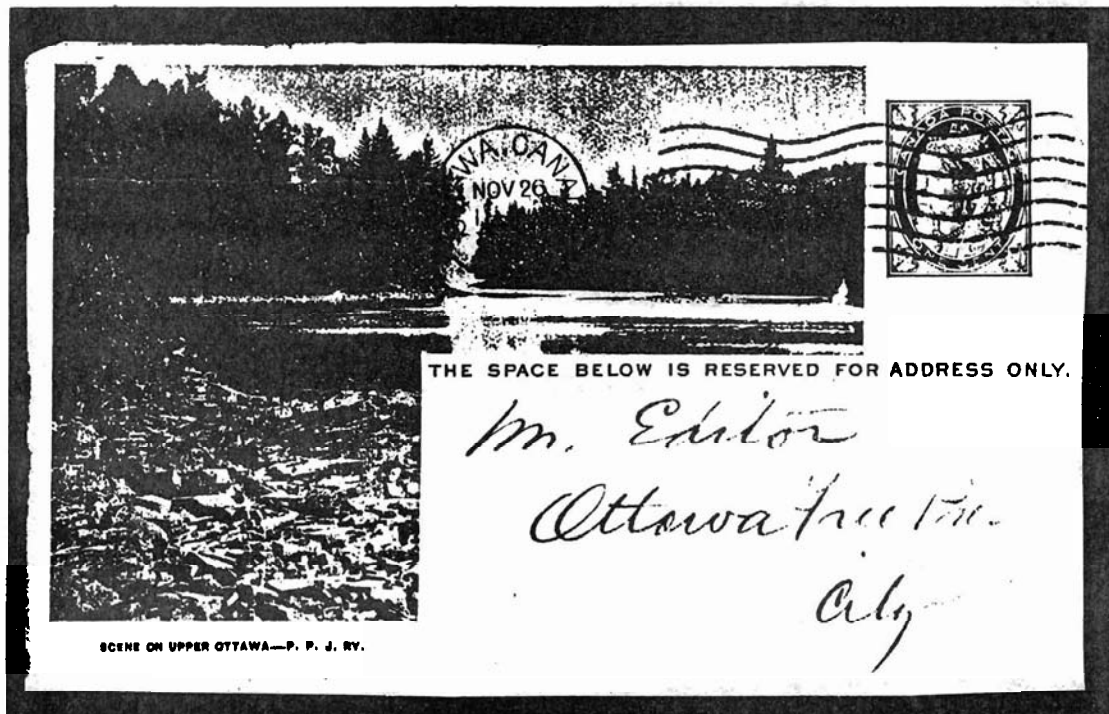 WA, CANA
NOV 26
CANADA POST
ONE CENT
THE SPACE BELOW IS RESERVED FOR ADDRESS ONLY.
Mr. Editor
Ottawa Free
City
SCENE ON UPPER OTTAWA—P. P. J. RY.